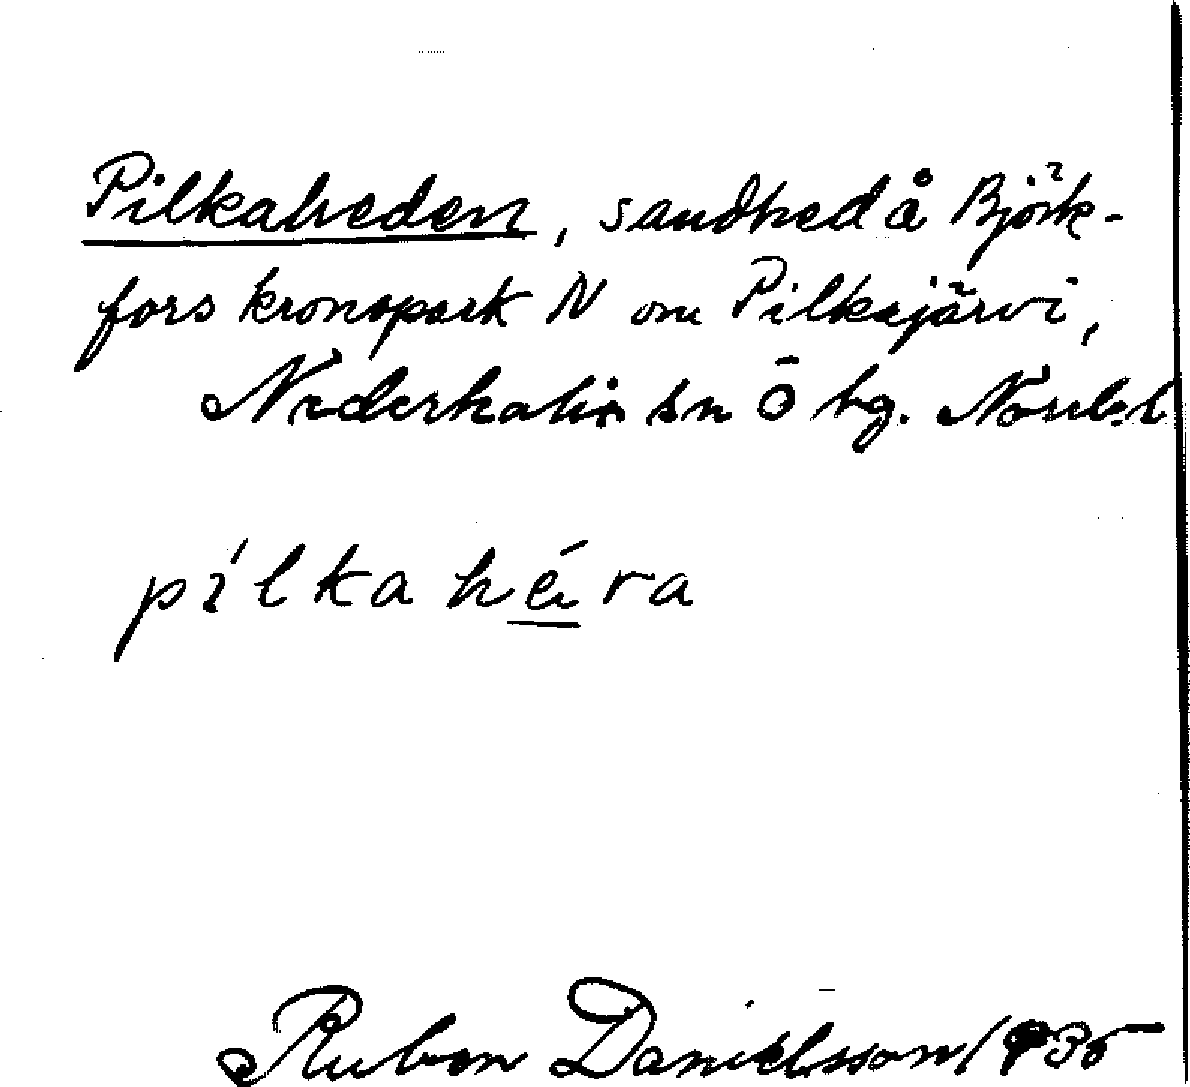 Pilkaheden, sandhed å Björk-
fors kronopark N om Pilkajärvi,
Nederkalix sn Ö bg. Norrb.l
pílkahéra
Ruben Danielsson 1935